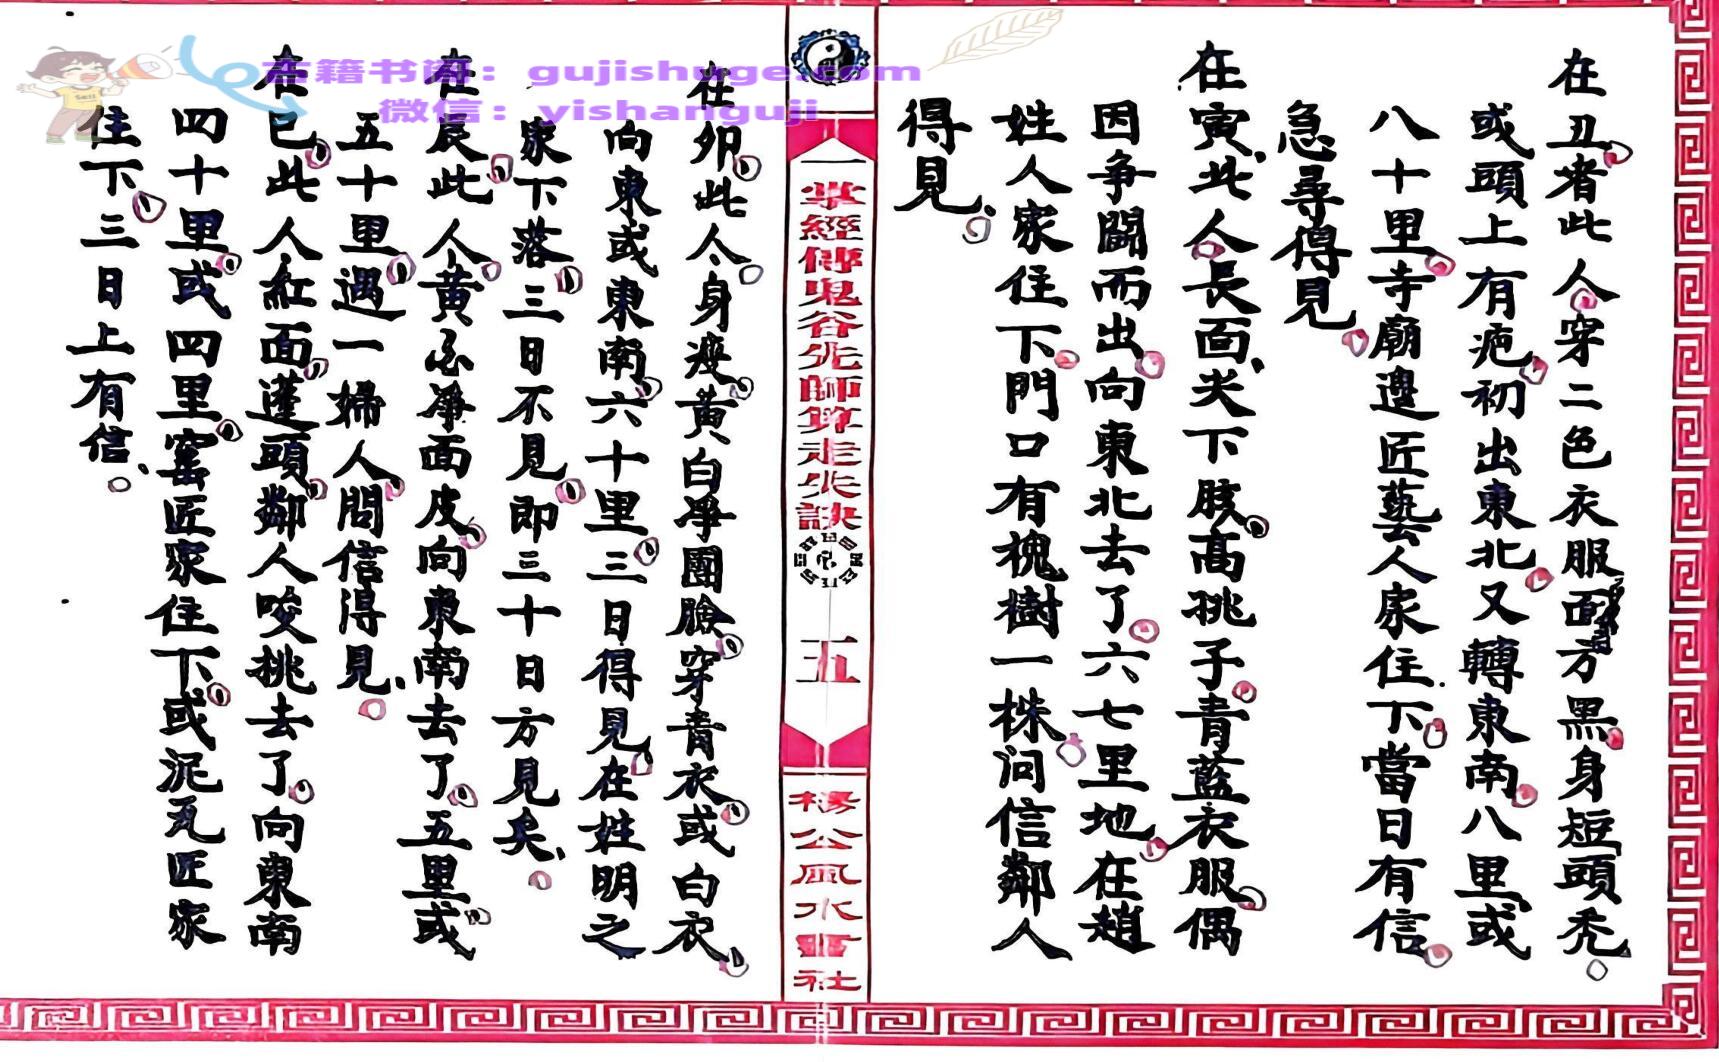 在丑者此人穿二色衣服面方黑身短頭秃
或頭上有疤初出東北又轉東南八里或
八十里寺廟邊匠藝人家住下當日有信
急尋得見
在寅此人長面尖下胲高挑子青藍衣服偶
因争鬪而出向東北去了六七里地在趙
姓人家住下門口有槐樹一株问信鄰人
得見
一掌經傳鬼谷先師算走失訣
五
楊公風水書社
在卯此人身瘦黄白净團臉穿青衣或白衣
向東或東南六十里三日得見在姓明之
家下落三日不見即三十日方見矣
在辰此人黄必净面皮向東南去了五里或
五十里遇一婦人問信得見
在巳此人紅面蓬頭鄰人唆挑去了向東南
四十里或四里窰匠家住下或泥瓦匠家
住下三日上有信
古籍书阁：gujishuge.com
微信：yishanguji